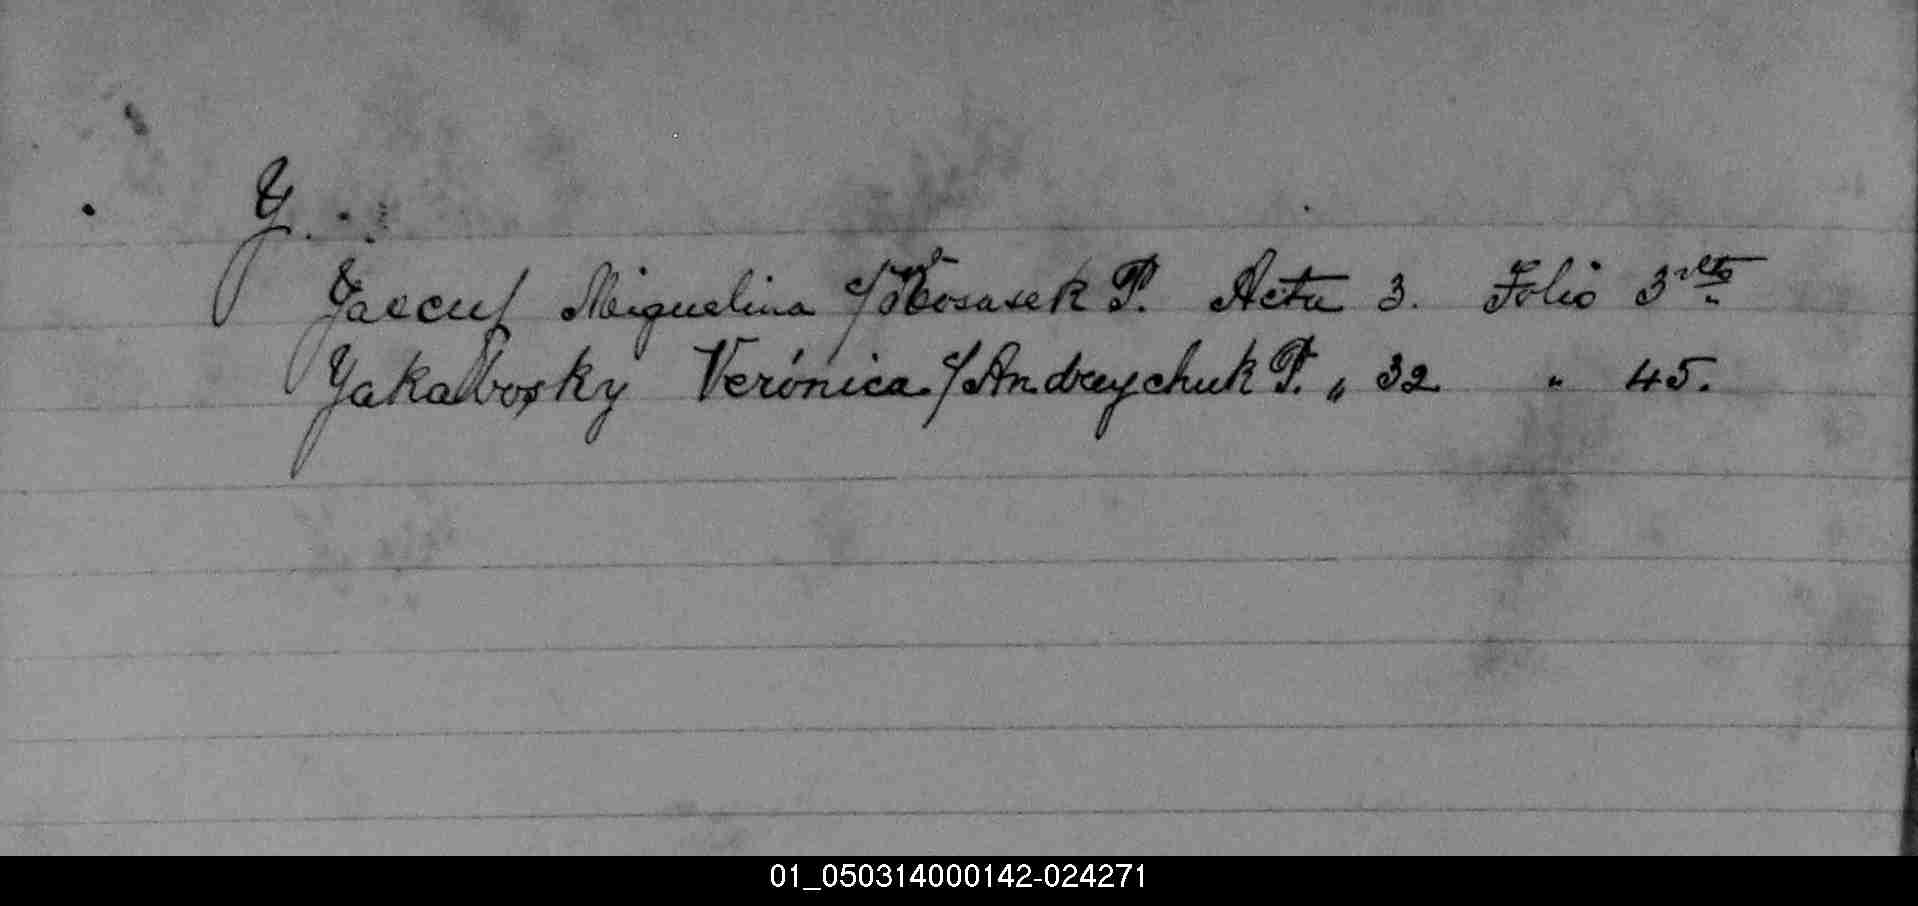 Y.
Yaecuf Miguelina c/ Kosasek P. Acta 3. Folio 3 vlto
Yakabosky Verónica c/ Andreychuk P. " 32 " 45.
01_050314000142-024271